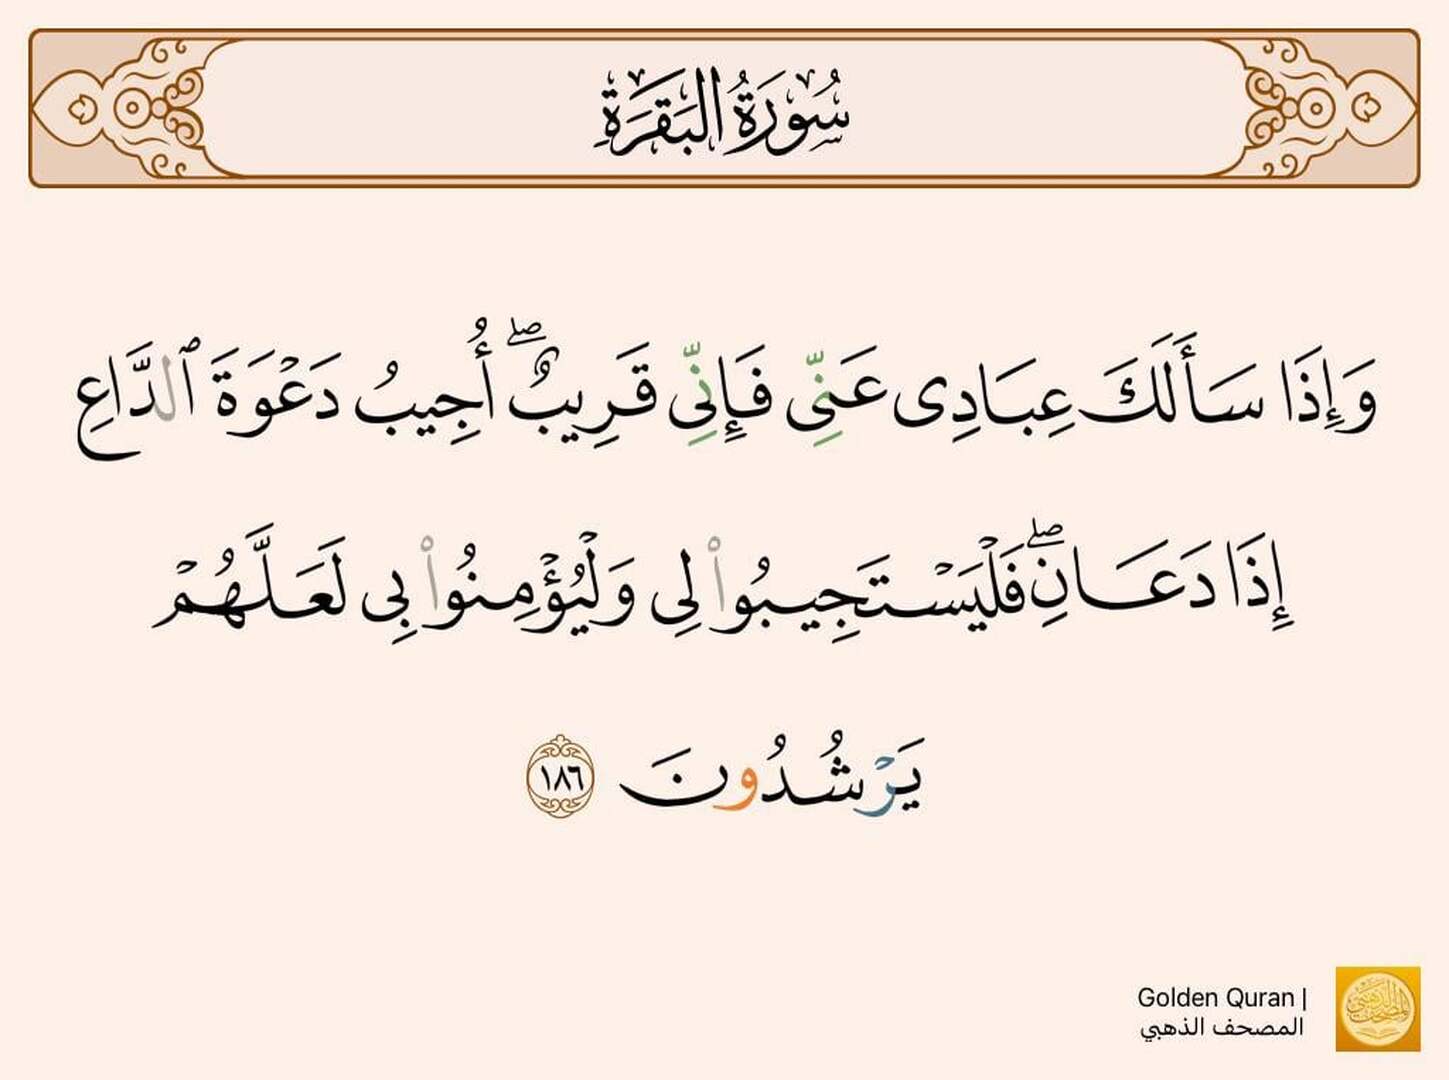 سُورَةُ البَقَرَةِ
وَإِذَا سَأَلَكَ عِبَادِى عَنِّى فَإِنِّى قَرِيبٌ ۖ أُجِيبُ دَعْوَةَ ٱلدَّاعِ
إِذَا دَعَانِ ۖ فَلْيَسْتَجِيبُوا۟ لِى وَلْيُؤْمِنُوا۟ بِى لَعَلَّهُمْ
يَرْشُدُونَ ١٨٦
Golden Quran |
المصحف الذهبي
المصحف الذهبي